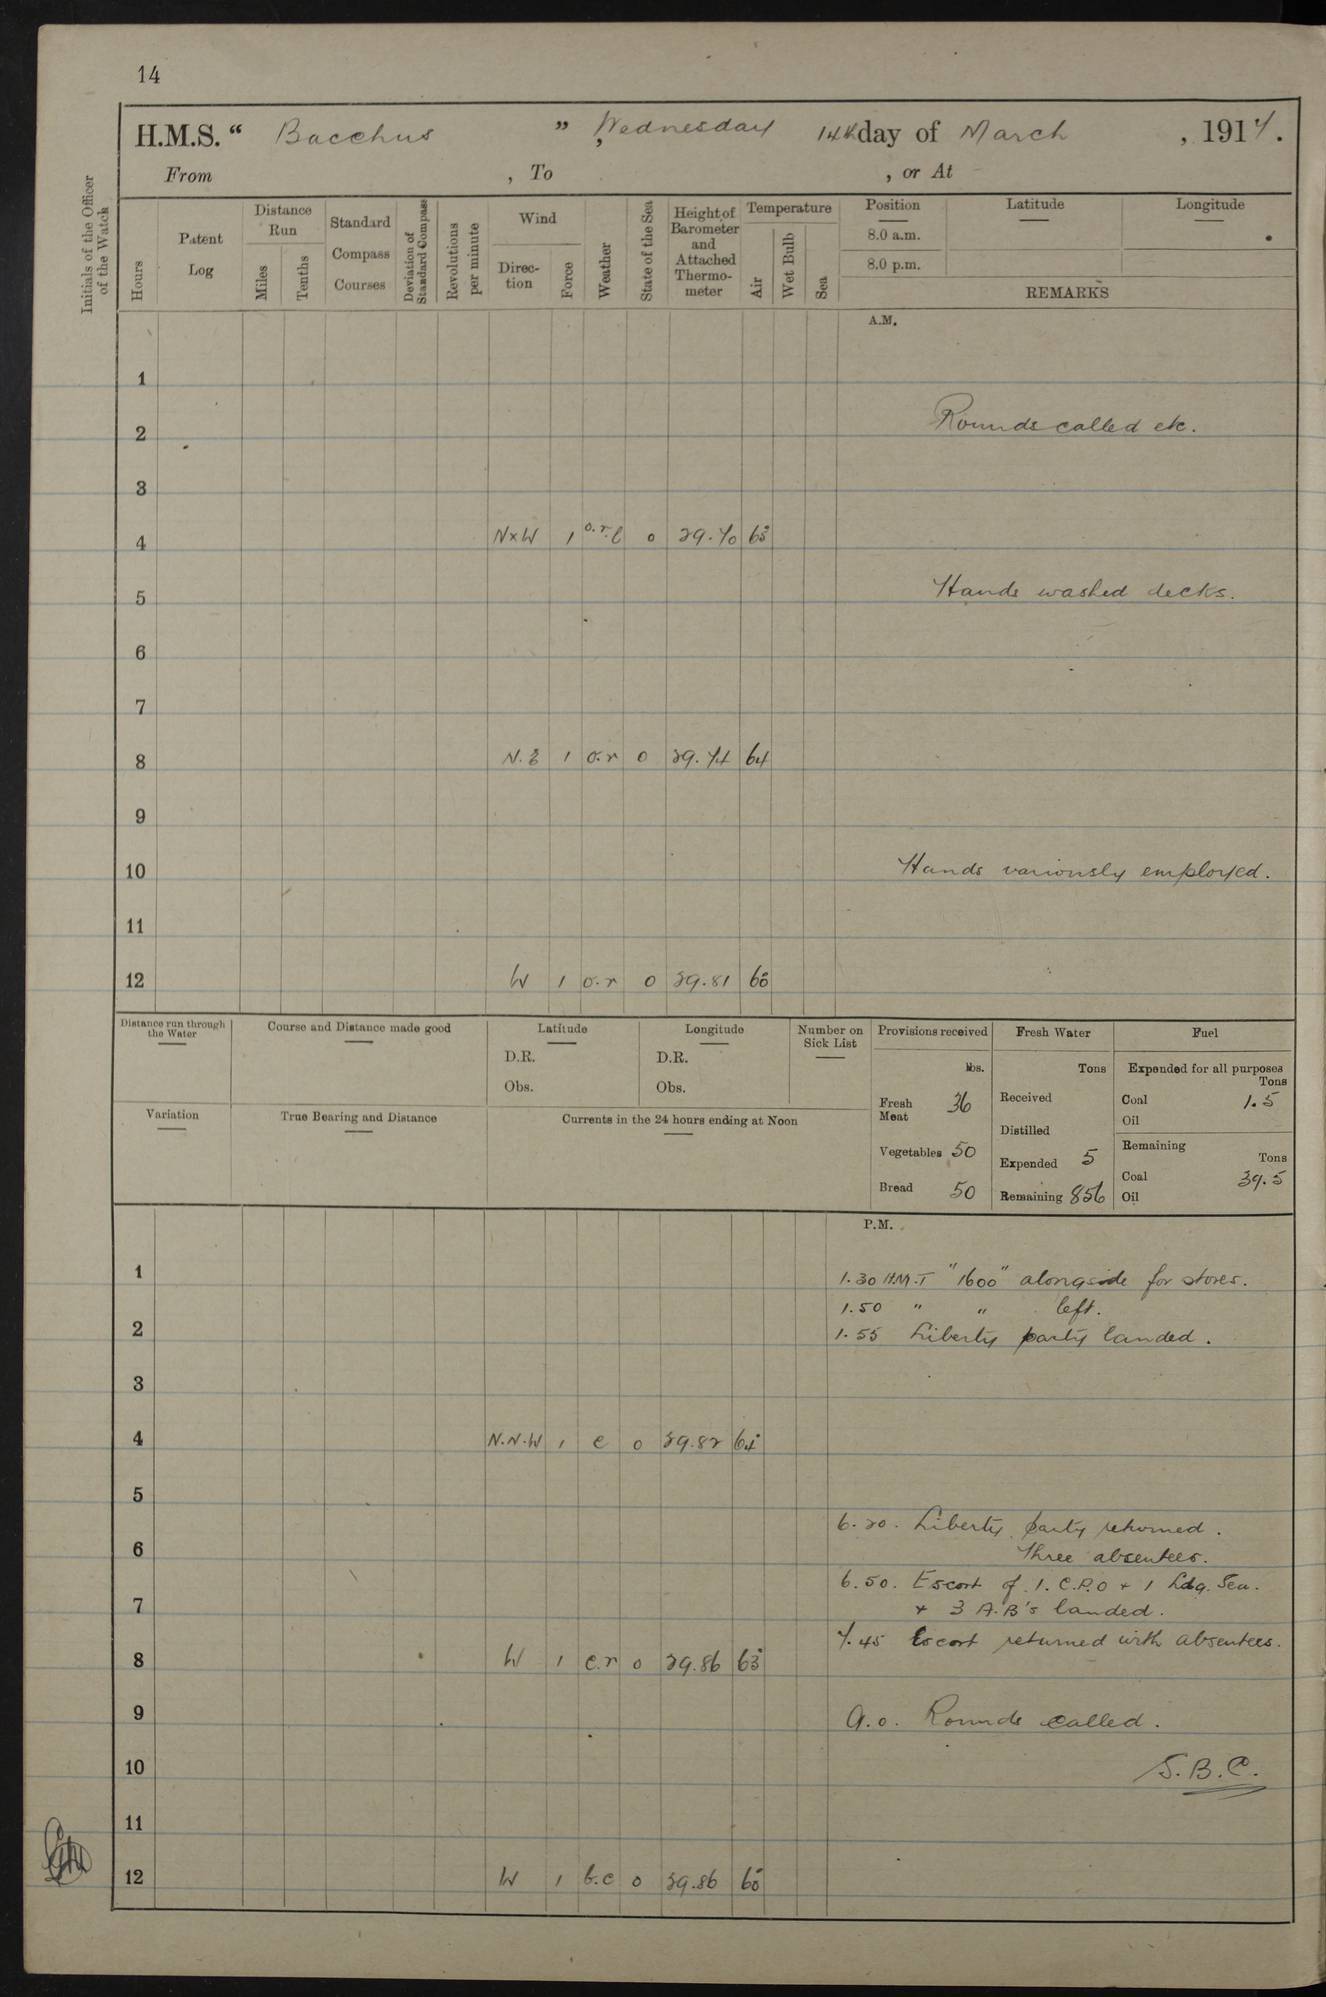 14
H.M.S. “ Bacchus ” , Wednesday 14th day of March , 1917.
From , To , or At
Initials of the Officer of the Watch
Hours
Patent Log
Distance Run
Miles
Tenths
Standard Compass Courses
Deviation of Standard Compass
Revolutions per minute
Wind
Direction
Force
Weather
State of the Sea
Height of Barometer and Attached Thermometer
Temperature
Air
Wet Bulb
Sea
Position Latitude Longitude
8.0 a.m.
8.0 p.m.
REMARKS
A.M.
1
2 Rounds called etc.
3
4 N×W 1 o.r.l 0 29.70 65°
5 Hands washed decks.
6
7
8 N.E 1 o.r 0 29.74 64
9
10 Hands variously employed.
11
12 W 1 o.r 0 29.81 60°
Distance run through the Water
Course and Distance made good
Latitude
D.R.
Obs.
Longitude
D.R.
Obs.
Number on Sick List
Variation
True Bearing and Distance
Currents in the 24 hours ending at Noon
Provisions received
lbs.
Fresh Meat 36
Vegetables 50
Bread 50
Fresh Water
Tons
Received
Distilled
Expended 5
Remaining 856
Fuel
Expended for all purposes
Tons
Coal 1.5
Oil
Remaining
Tons
Coal 39.5
Oil
P.M.
1 1.30 H.M.T "1600" alongside for stores.
1.50 " " left.
2 1.55 Liberty party landed.
3
4 N.N.W 1 c 0 29.82 64°
5
6.20. Liberty party returned.
6 Three absentees.
6.50. Escort of 1. C.P.O + 1 Ldg. Sea.
7 + 3 A.B's landed.
7.45 Escort returned with absentees.
8 W 1 c.r 0 29.86 63°
9 9.0. Rounds called.
10 S.B.C.
11
12 W 1 b.c 0 29.86 60°